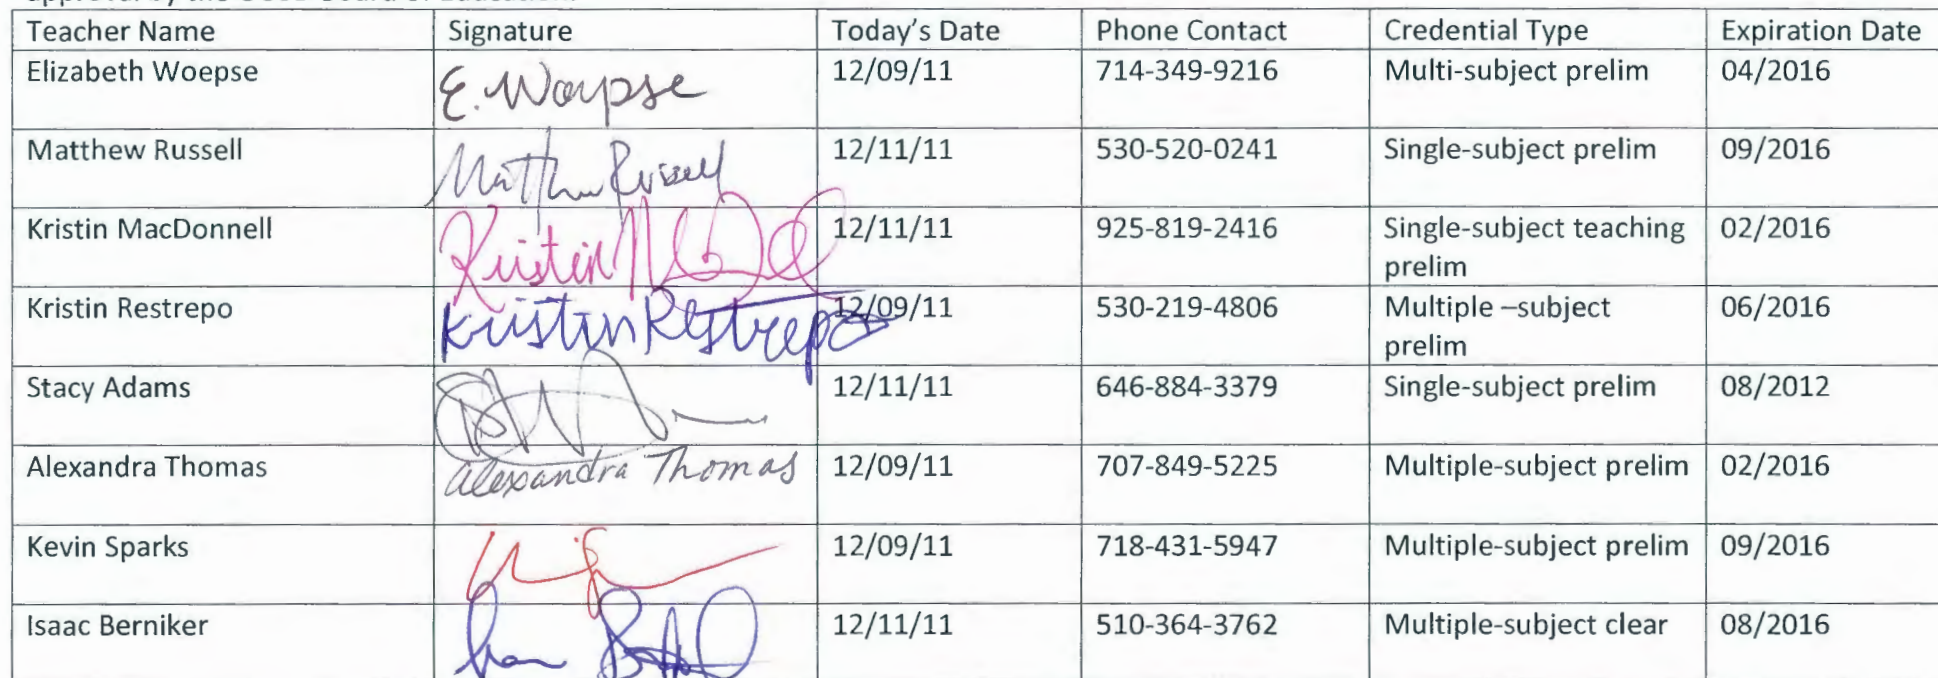 Teacher Name Signature Today's Date Phone Contact Credential Type Expiration Date
Elizabeth Woepse E. Woepse 12/09/11 714-349-9216 Multi-subject prelim 04/2016
Matthew Russell Matthew Russell 12/11/11 530-520-0241 Single-subject prelim 09/2016
Kristin MacDonnell Kristin 12/11/11 925-819-2416 Single-subject teaching 02/2016
prelim
Kristin Restrepo Kristin Restrepo 12/09/11 530-219-4806 Multiple –subject 06/2016
prelim
Stacy Adams 12/11/11 646-884-3379 Single-subject prelim 08/2012
Alexandra Thomas Alexandra Thomas 12/09/11 707-849-5225 Multiple-subject prelim 02/2016
Kevin Sparks 12/09/11 718-431-5947 Multiple-subject prelim 09/2016
Isaac Berniker 12/11/11 510-364-3762 Multiple-subject clear 08/2016